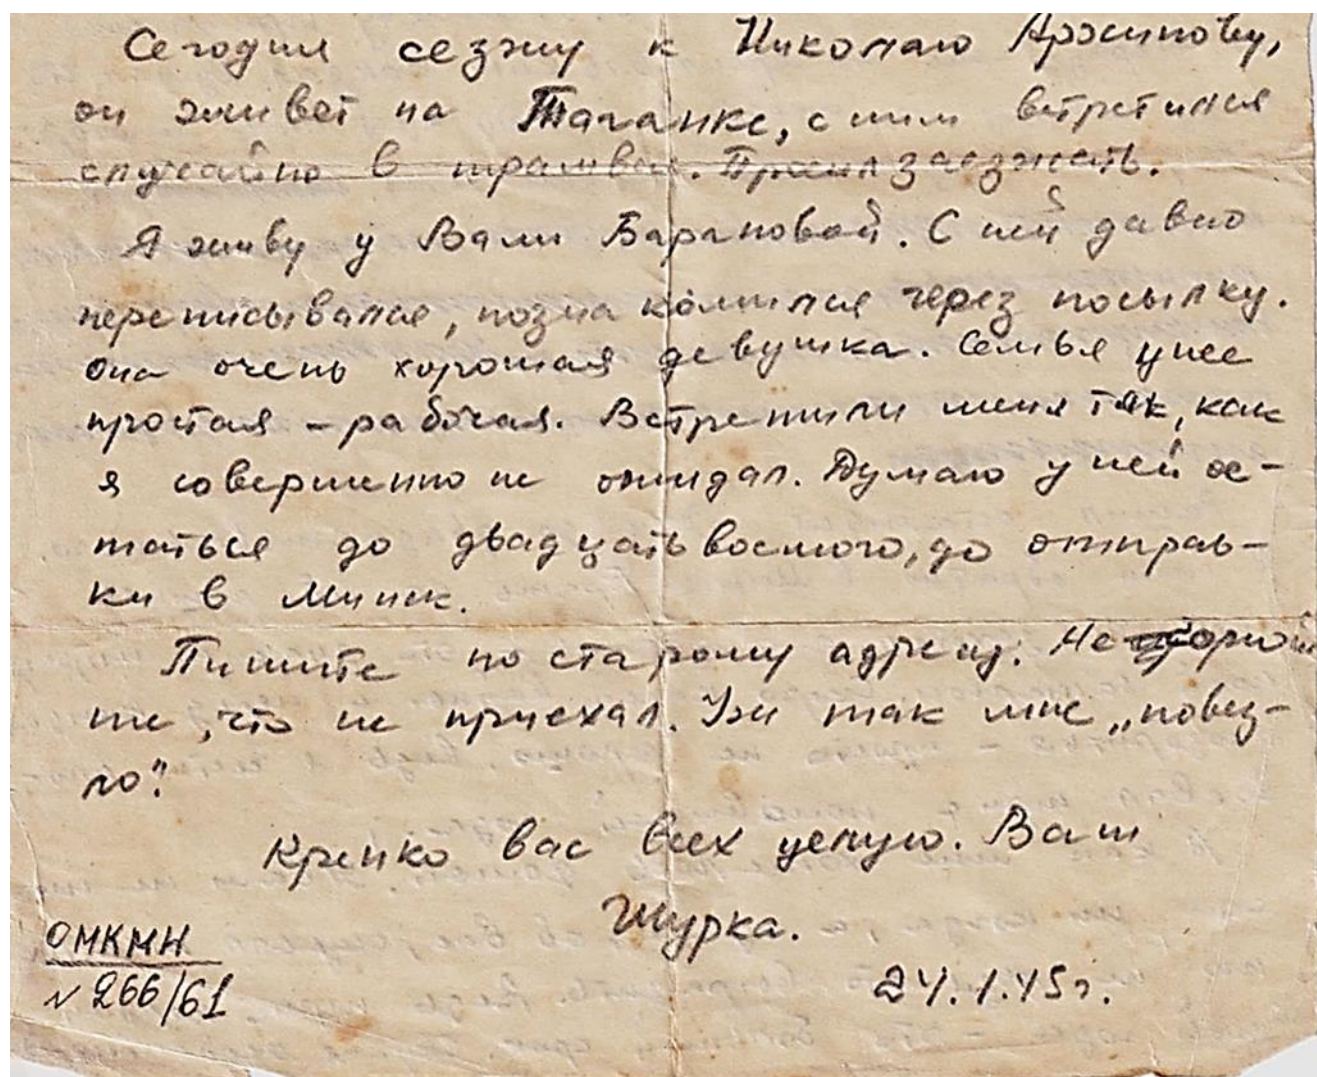 Сегодня сезжу к Николаю Архипову,
он живет на Таганке, с ним встретился
случайно в трамвае. Просил заезжать.
Я живу у Вали Барановой. С ней давно
переписывался, познакомился через посылку.
Она очень хорошая девушка. Семья у нее
простая – рабочая. Встретили меня так, как
я совершенно не ожидал. Думаю у ней ос-
таться до двадцать восьмого, до отправ-
ки в Минск.
Пишите по старому адресу. Не
те, что не приехал. Уж так мне „повез-
ло".
Крепко вас всех целую. Ваш
Шурка.
24.1.45г.
ОМК МН
№ 266/61